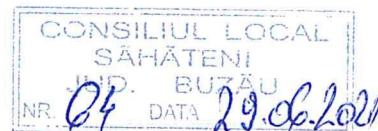 CONSILIUL LOCAL
SĂHĂTENI
JUD. BUZĂU
NR. 64 DATA 29.06.2021